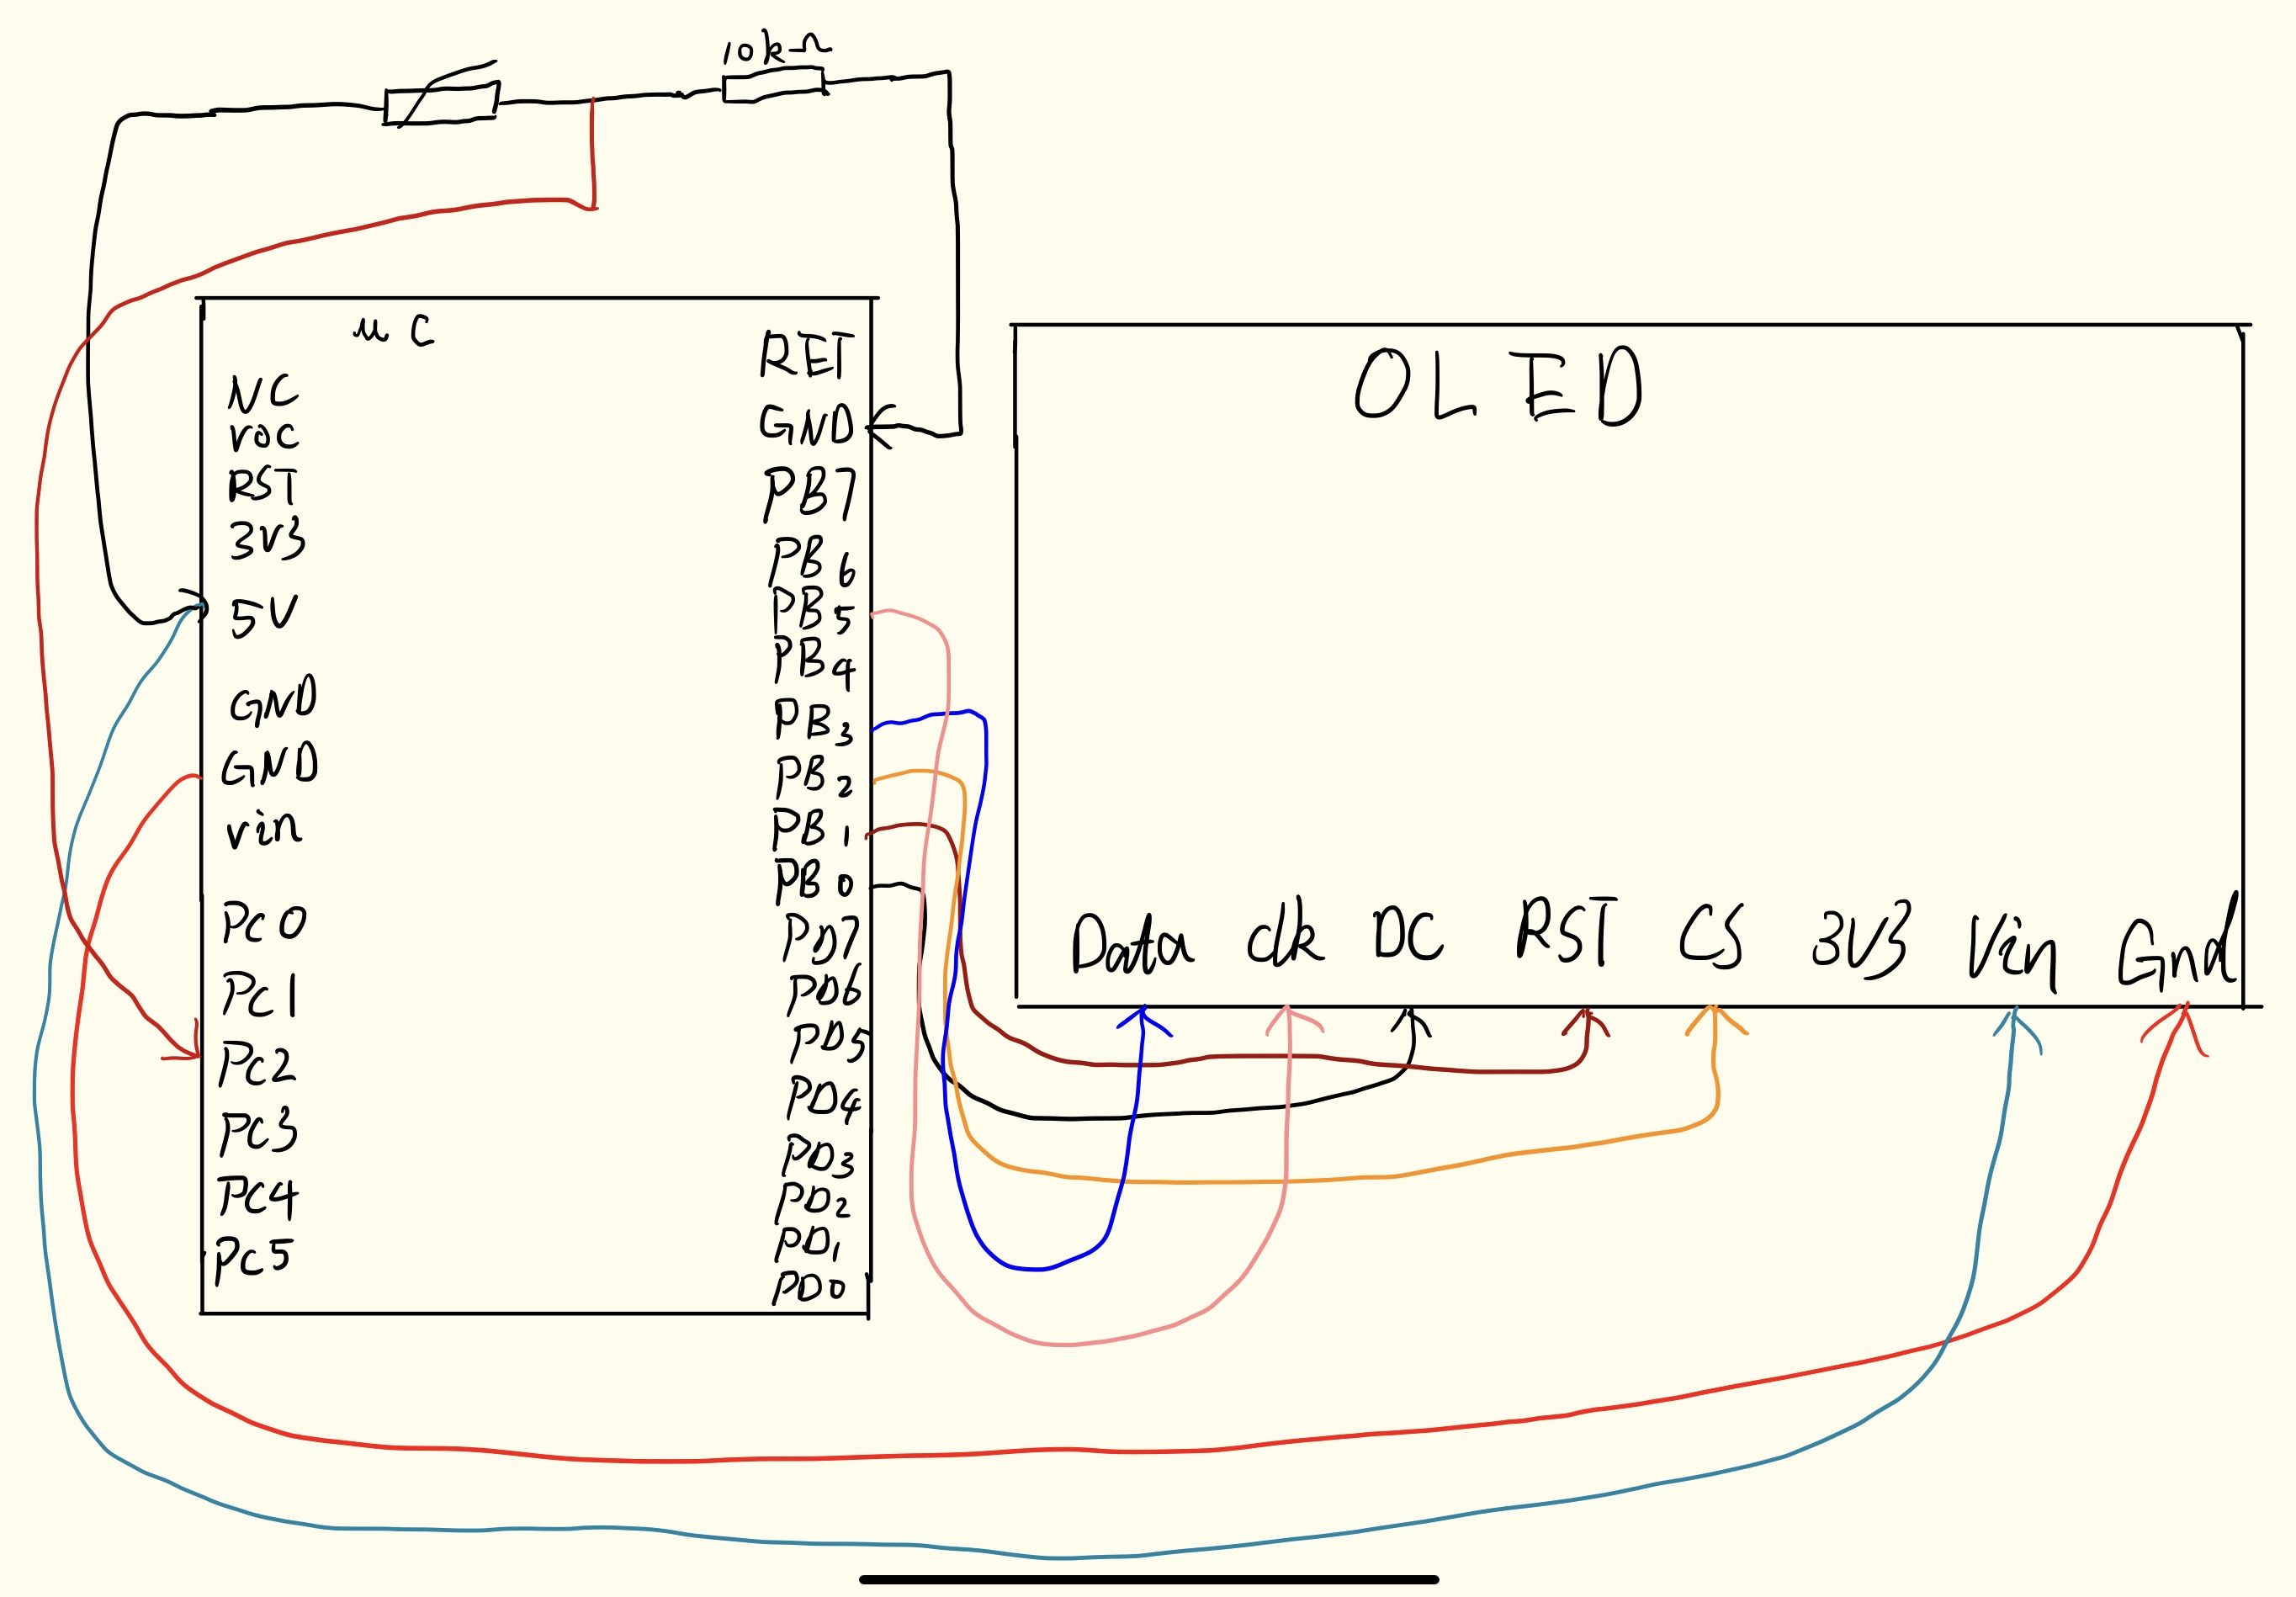 10kΩ
uC
NC
Voc
RST
3V3
5V
GND
GND
vin
PC0
PC1
PC2
PC3
PC4
PC5
RET
GND
PB7
PB6
PB5
PB4
PB3
PB2
PB1
PB0
PD7
PD6
PD5
PD4
PD3
PD2
PD1
PD0
OLED
Data clk DC RST CS 3V3 Vin Gnd